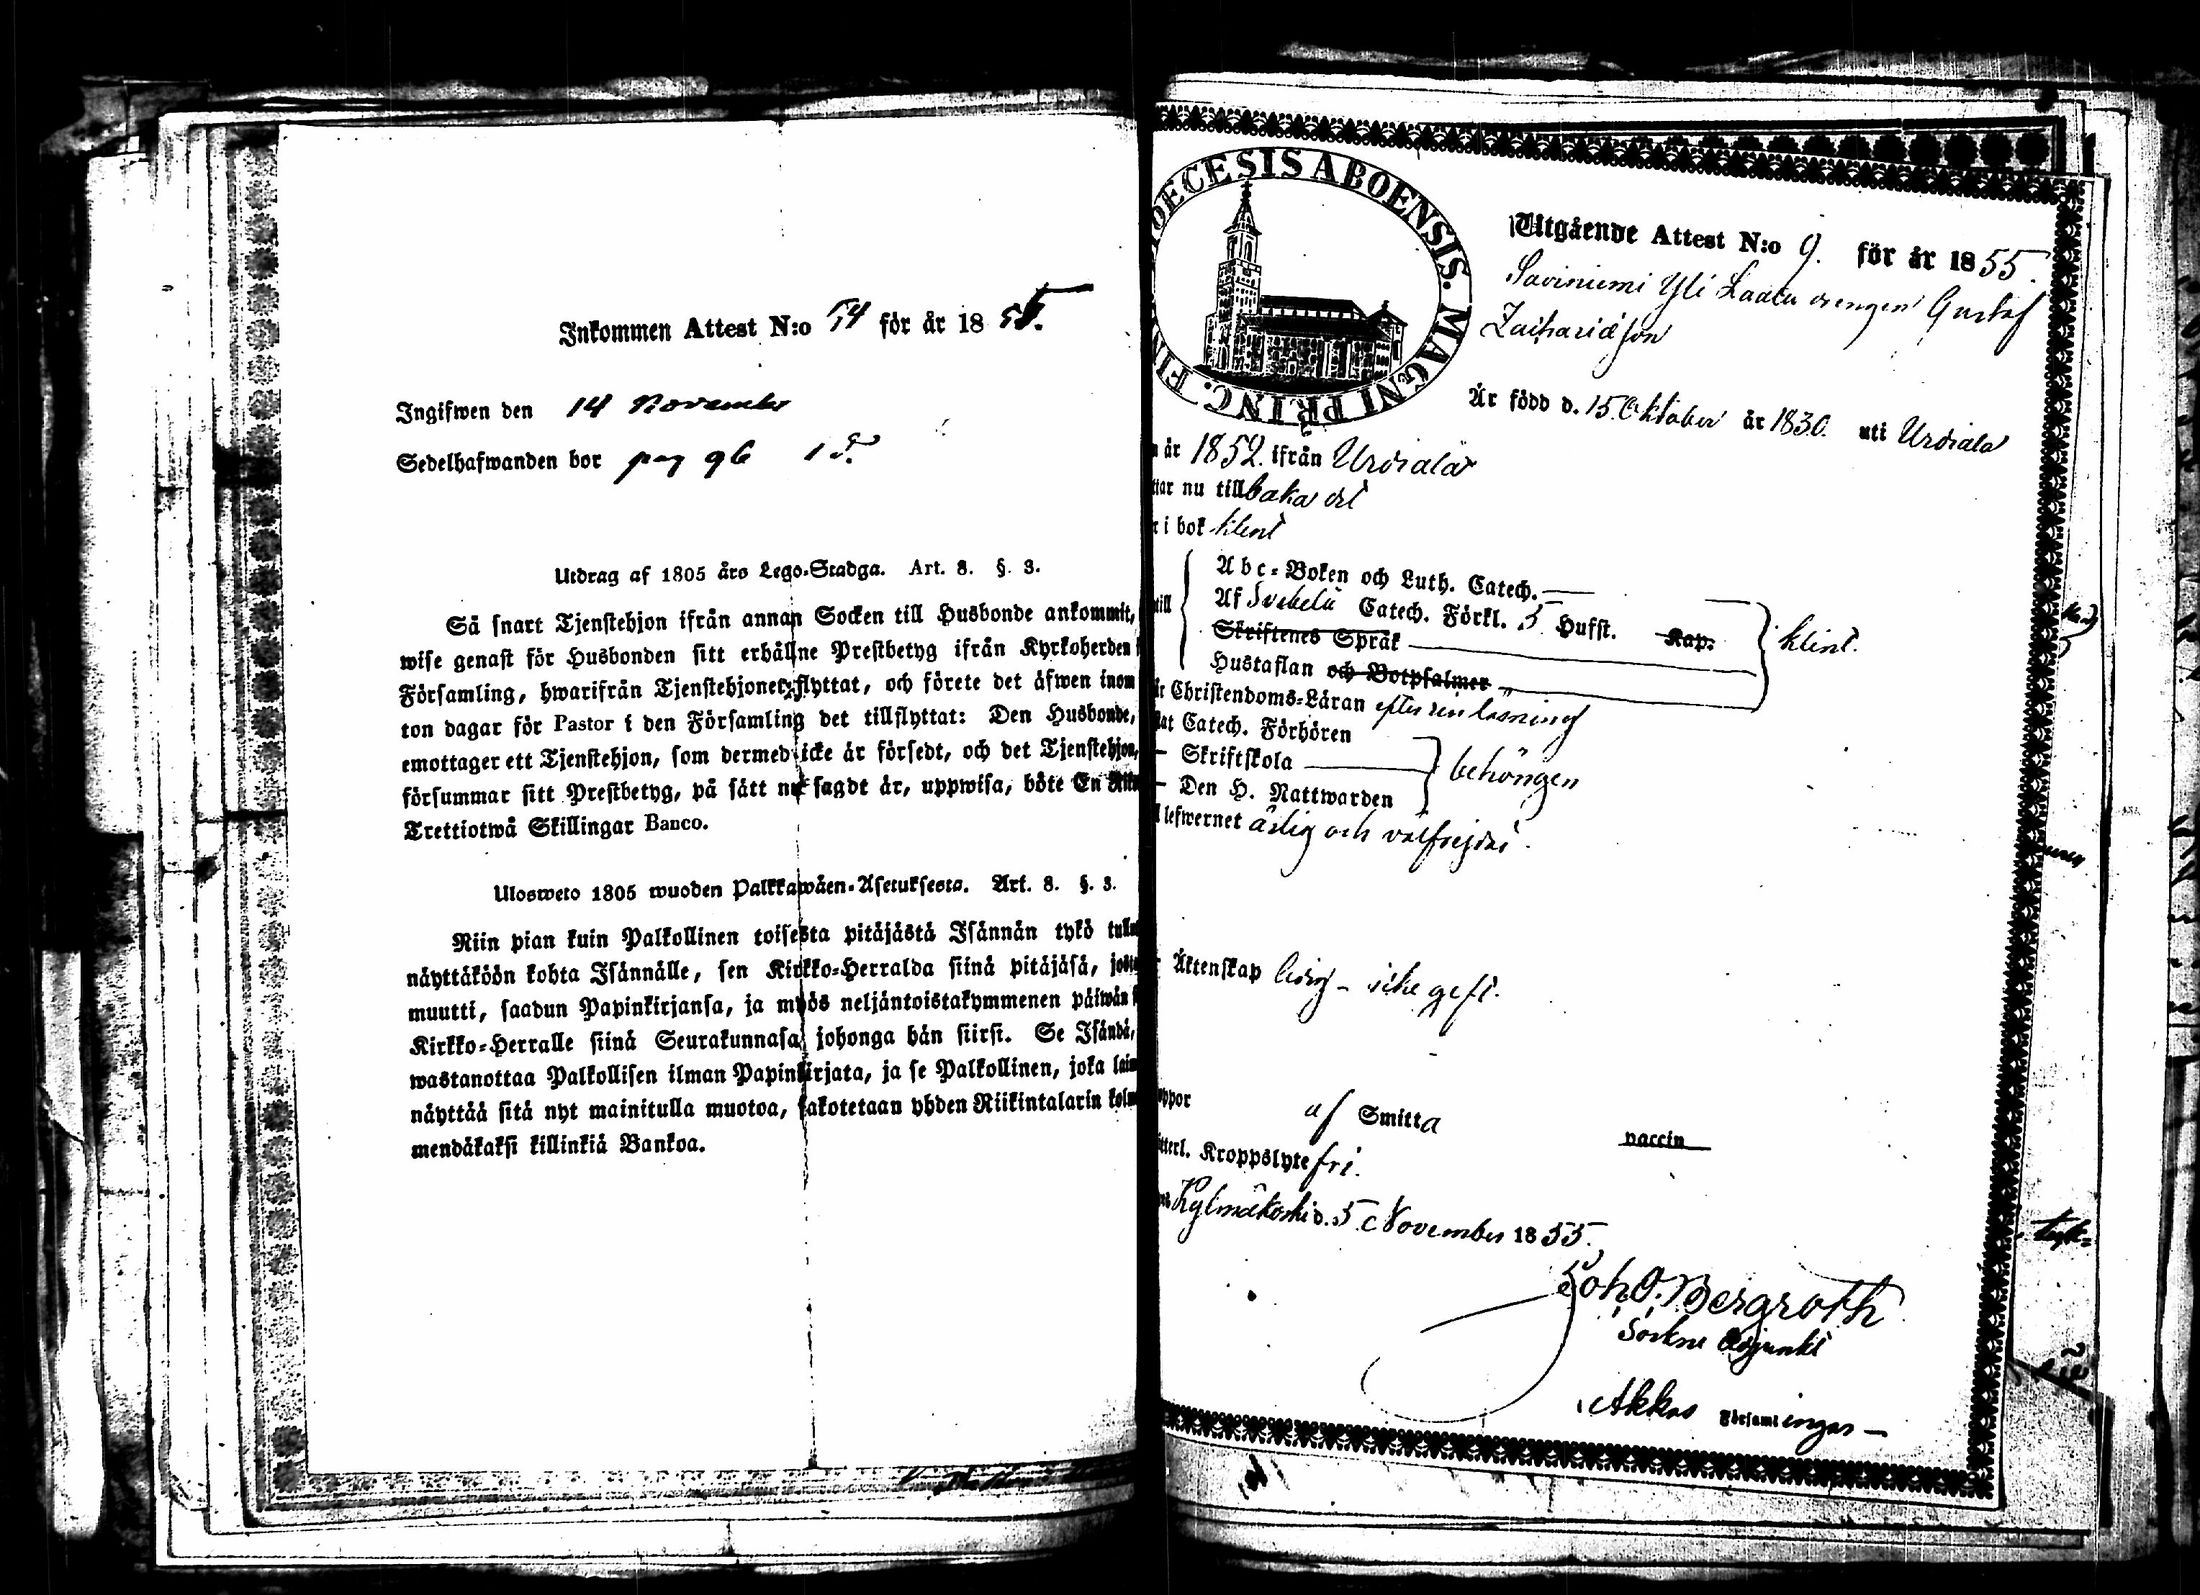 Inkommen Attest N:o 54 för år 1855.
Ingifwen den 14 November
Sedelhafwanden bor pag 96
Utdrag af 1805 års Lego-Stadga. Art. 8. §. 3.
Så snart Tjenstehjon ifrån annan Socken till Husbonde ankommit,
wise genast för Husbonden sitt erhållne Prestbetyg ifrån Kyrkoherden
Församling, hwarifrån Tjenstehjonet flyttat, och förete det äfwen inom
ton dagar för Pastor i den Församling det tillflyttat: Den Husbonde,
emottager ett Tjenstehjon, som dermed icke är försedt, och det Tjenstehjon,
försummar sitt Prestbetyg, på sätt nu sagdt är, uppwisa, böte En Riks
Trettiotwå Skillingar Banco.
Ulosweto 1805 wuoden Palkkawäen-Asetuksesta. Art. 8. §. 3.
Niin pian kuin Palkollinen toisesta pitäjästä Isännän tykö tullu
näyttäköön kohta Isännälle, sen Kirkko-Herralda siinä pitäjäsä, josta
muutti, saadun Papinkirjansa, ja myös neljäntoistakymmenen päiwän s
Kirkko-Herralle siinä Seurakunnasa johonga hän siirsi. Se Isändä,
wastanottaa Palkollisen ilman Papinkirjata, ja se Palkollinen, joka laim
näyttää sitä nyt mainitulla muotoa, sakotetaan yhden Riikintalarin kolm
mendäkaksi killinkiä Bankoa.
DIOECESIS ABOENSIS. MAGNI PRINC. FIN
Utgående Attest N:o 9. för år 1855.
Saviniemi Yli Laatu drengen Gustaf
Zachariæson
Är född d. 15 Oktober år 1830. uti Urdiala
n år 1852. ifrån Urdiala
ttar nu tillbaka dit
r i bok klent
Abc-Boken och Luth. Catech.
till Af Svebelii Catech. Förkl. 5 Hufst. Kap. klent.
Skriftenes Språk
Hustaflan och Botpsalmer
är Christendoms-Läran efter sin läsning
stat Catech. Förhören
Skriftskola behörigen
Den H. Nattwarden
l lefwernet ärlig och välfrejdad.
r Äktenskap ledig - icke gift.
oppor af Smitta vaccin
tterl. Kroppslyte fri.
Kylmäkoski d. 5 November 1855.
Joh. O. Bergroth
Sockne Adjunkt
i Akkas Församlingar